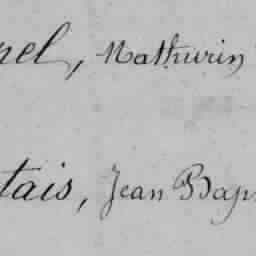 nel, Mathurin
tais, Jean Bap